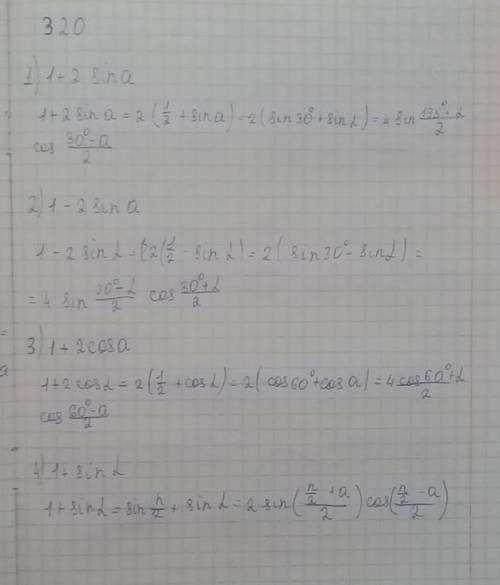 320
1) 1+2 sin a
1+2 sin a = 2 (1/2 + sin a) = 2 (sin 30° + sin L) = 4 sin (30°+L)/2
cos (30°-a)/2
2) 1-2 sin a
1-2 sin L = 2(1/2 - sin L) = 2 (sin 30° - sin L) =
= 4 sin (30°-L)/2 cos (30°+L)/2
3) 1+2 cos a
1+2 cos L = 2 (1/2 + cos L) = 2 (cos 60° + cos a) = 4 cos 60°+L/2
cos (60°-a)/2
4) 1+ sin L
1+ sin L = sin п/2 + sin L = 2 sin ((п/2 + a)/2) cos ((п/2 - a)/2)